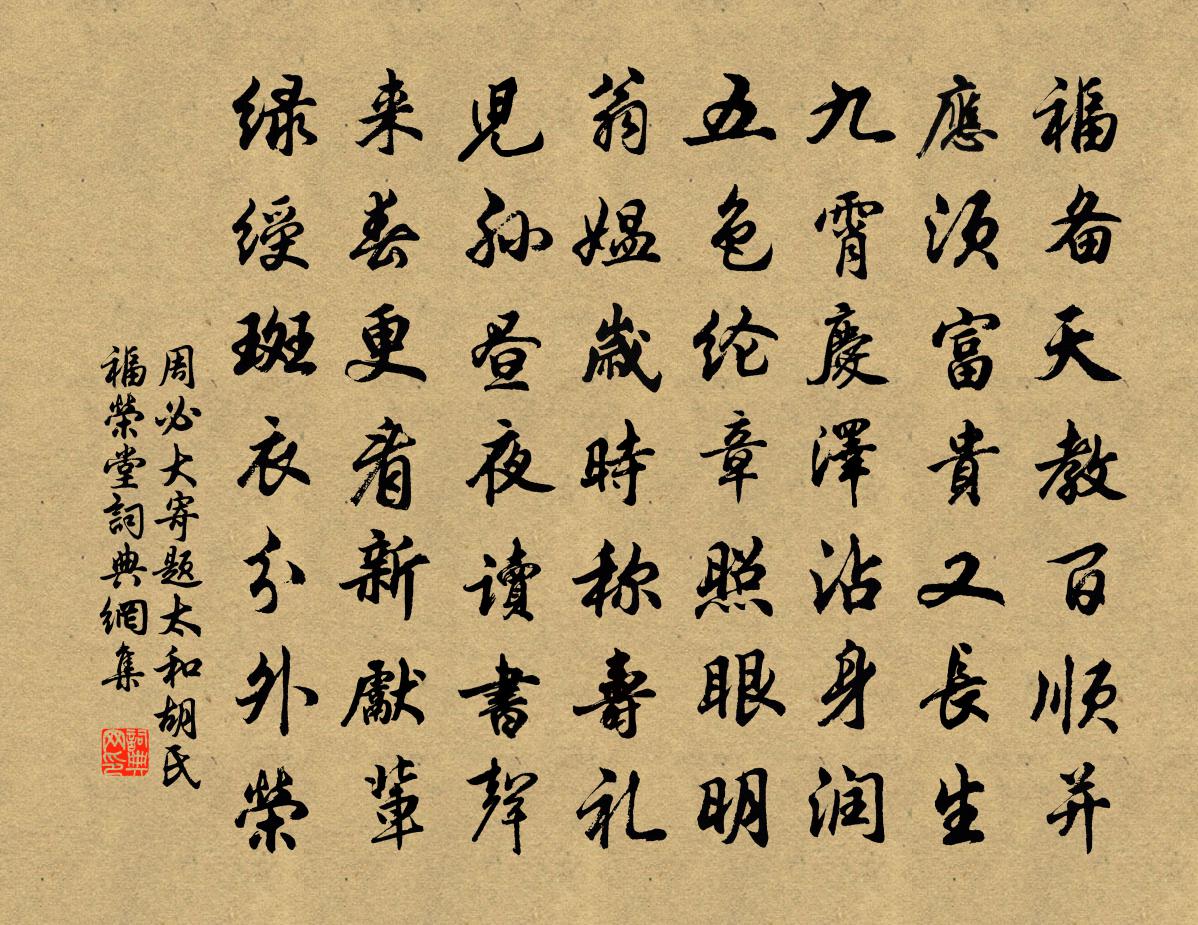 福备天教百顺并
應须富貴又長生
九霄慶澤沾身润
五色纶章照眼明
翁媪歳時称壽礼
児孙昼夜读書聲
来春更看新獻輩
绿綬斑衣分外榮
周必大寄题太和胡氏
福榮堂詞典網集
詞典网印